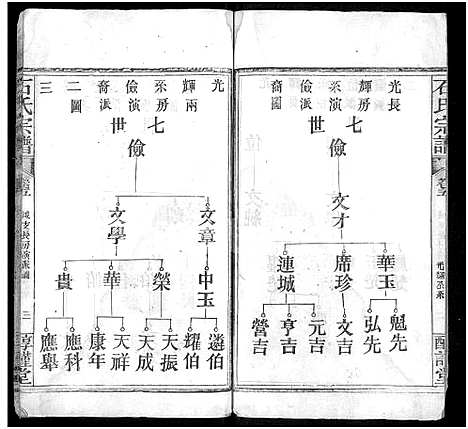 石氏宗譜
卷五
光長
輝房
釆演
儉派
裔圖
七世
儉
文才
華玉
席珍
連城
魁先
弘先
文吉
元吉
亨吉
營吉
光
輝兩
釆房
儉演
裔派
二圖
三
七世
儉
文章
文學
中玉
榮
華
貴
遴伯
耀伯
天振
天成
天祥
康年
應科
應舉
石氏宗譜
卷五
三